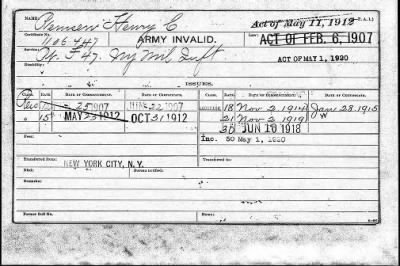 NAME: Remsen Henry C Act of May 11, 1912 (P.A.I.)
Certificate No. 1106447 ARMY INVALID. Law: ACT OF FEB. 6, 1907
Service: F 47. Ny Mil Inft ACT OF MAY 1, 1920
Disability:
ISSUES.
CLASS. DATE OF COMMENCEMENT. DATE OF CERTIFICATE. CLASS. DATE OF COMMENCEMENT. DATE OF CERTIFICATE.
25 1907 22 1907 18 Nov 2 1914 Jan 28 1915
15 MAY 23 1912 OCT 31 1912 21 Nov 2 1919
JUN 10 1918
Fees: Inc. 50 May 1, 1920
Transferred from: NEW YORK CITY, N.Y. Transferred to:
Died: Bureau notified:
Remarks:
Former Roll No. Home: